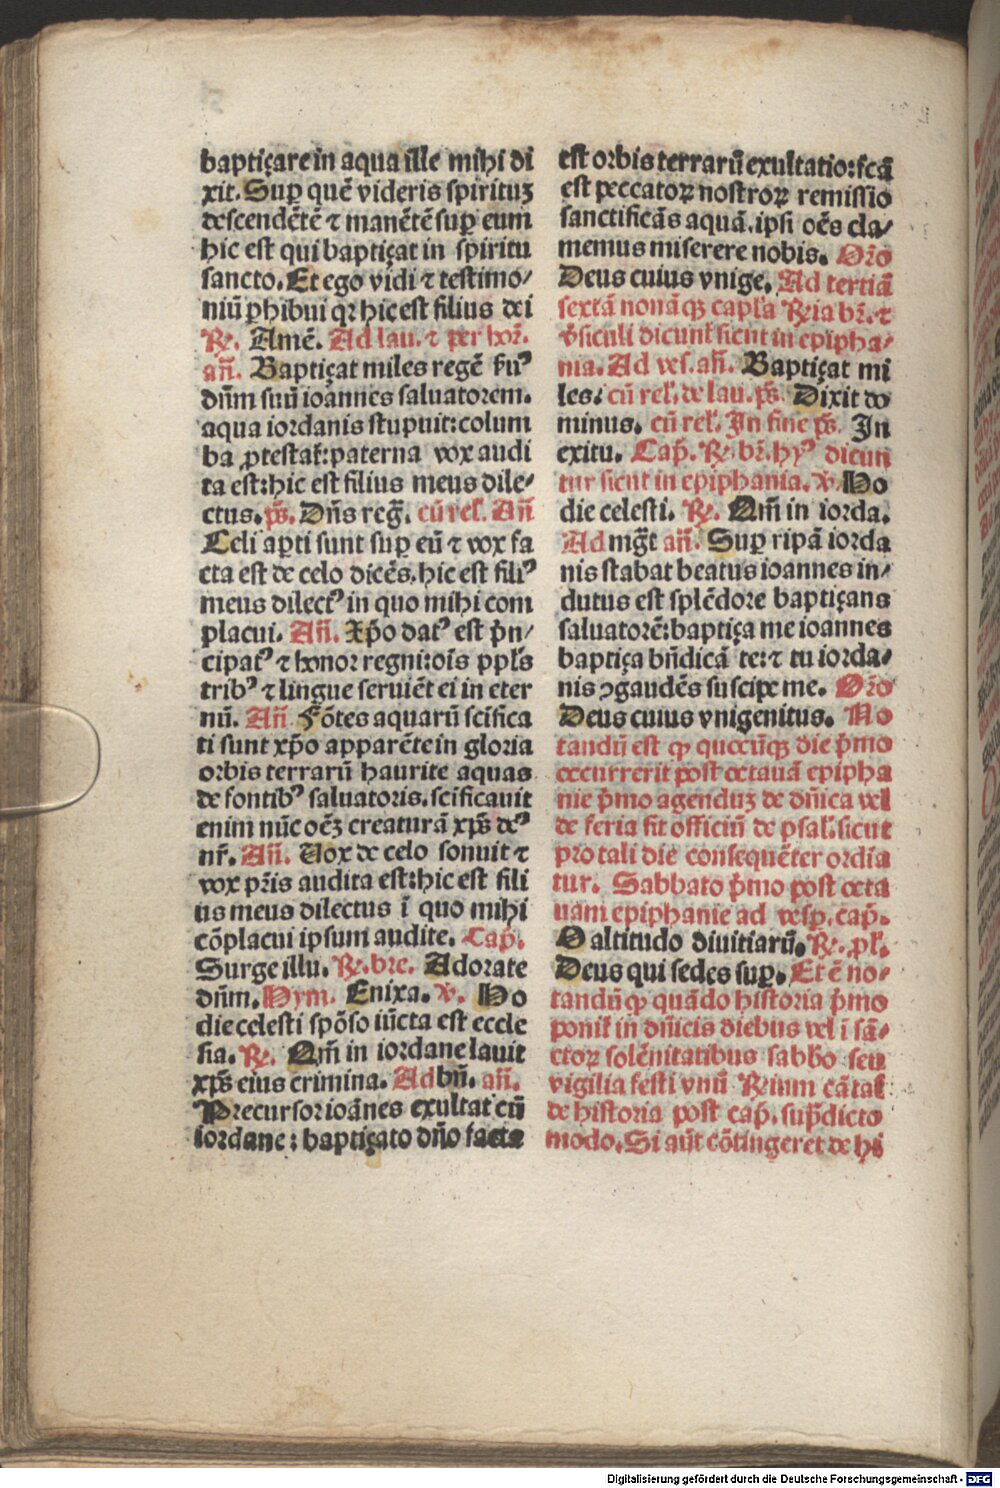 baptiçare in aqua ille mihi di
xit. Suꝑ quē videris spirituꝫ
descendētē ⁊ manētē suꝑ eum
hic est qui baptiçat in spiritu
sancto. Et ego vidi ⁊ testimo/
niū ꝑhibui qꝛ hic est filius dei
℟. Amē. Ad lau. ⁊ per hoꝛ.
añ. Baptiçat miles regē ẜuꝰ
dñm suū ioannes saluatorem.
aqua iordanis stupuit: colum
ba ꝓtestat̄: paterna vox audi
ta est: hic est filius meus dile/
ctus. p̄s. Dñs reg̃. cū rel̓. Añ
Celi aꝑti sunt suꝑ eū ⁊ vox fa
cta est de celo dicēs. hic est filiꝰ
meus dilectꝰ in quo mihi com
placui. Añ. Xp̄o datꝰ est p̄n/
cipatꝰ ⁊ honor regni: oīs ppl̓s
tribꝰ ⁊ lingue seruiēt ei in eter
nū. Añ Fōtes aquarū scifica
ti sunt xp̄o apparēte in gloria
orbis terrarū haurite aquas
de fontibꝰ saluatoris. scificauit
enim nūc oēꝫ creaturā xp̄s deꝰ
nr̄. Añ. Uox de celo sonuit ⁊
vox p̄ris audita est: hic est fili
us meus dilectus ī quo mihi
cōplacui ipsum audite. Cap̄.
Surge illu. ℟. bre. Adorate
dñm. Hym. Enixa. ℣. Ho
die celesti spōso iūcta est eccle
sia. ℟. Qm̄ in iordane lauit
xp̄s eius crimina. Ad bñ. añ.
Precursor ioānes exultat cū
iordane: baptiçato dño facta
est orbis terrarū exultatio: fcā
est peccatoꝝ nostroꝝ remissio
sanctificās aquā. ipsi oēs cla/
memus miserere nobis. Or̄o
Deus cuius vnige. Ad tertiā
sextā nonā qꝫ capl̓a ℟ia br̄. ⁊
v̄siculi dicunt̄ sicut in epipha/
nia. Ad ves. añ. Baptiçat mi
les: cū rel̓. de lau. p̄s. Dixit do
minus. cū rel̓. In fine p̄s. In
exitu. Cap̄. ℟. br̄. hyꝰ dicun
tur sicut in epiphania. ℣. Ho
die celesti. ℟. Qm̄ in iorda.
Ad mg̃t añ. Suꝑ ripā iorda
nis stabat beatus ioannes in/
dutus est splēdore baptiçans
saluatorē: baptiça me ioannes
baptiça bñdicā te: ⁊ tu iorda/
nis ꝯgaudēs suscipe me. Or̄o
Deus cuius vnigenitus. No
tandū est ꝙ quocūqꝫ die p̄mo
occurrerit post octauā epipha
nie p̄mo agenduꝫ de dñica vel
de feria fit officiū de psal̓. sicut
pro tali die consequēter ordia
tur. Sabbato p̄mo post octa
uam epiphanie ad vesꝑ. cap̄.
O altitudo diuitiarū. ℟. pl̓.
Deus qui sedes suꝑ. Et ē no/
tandū ꝙ quādo historia p̄mo
ponit̄ in dñicis diebus vel ī sā/
ctoꝝ solēnitatibus sabb̄o seu
vigilia festi vnū ℟ium cātat̄
de historia post cap̄. sup̄dicto
modo. Si aūt cōtingeret de hi